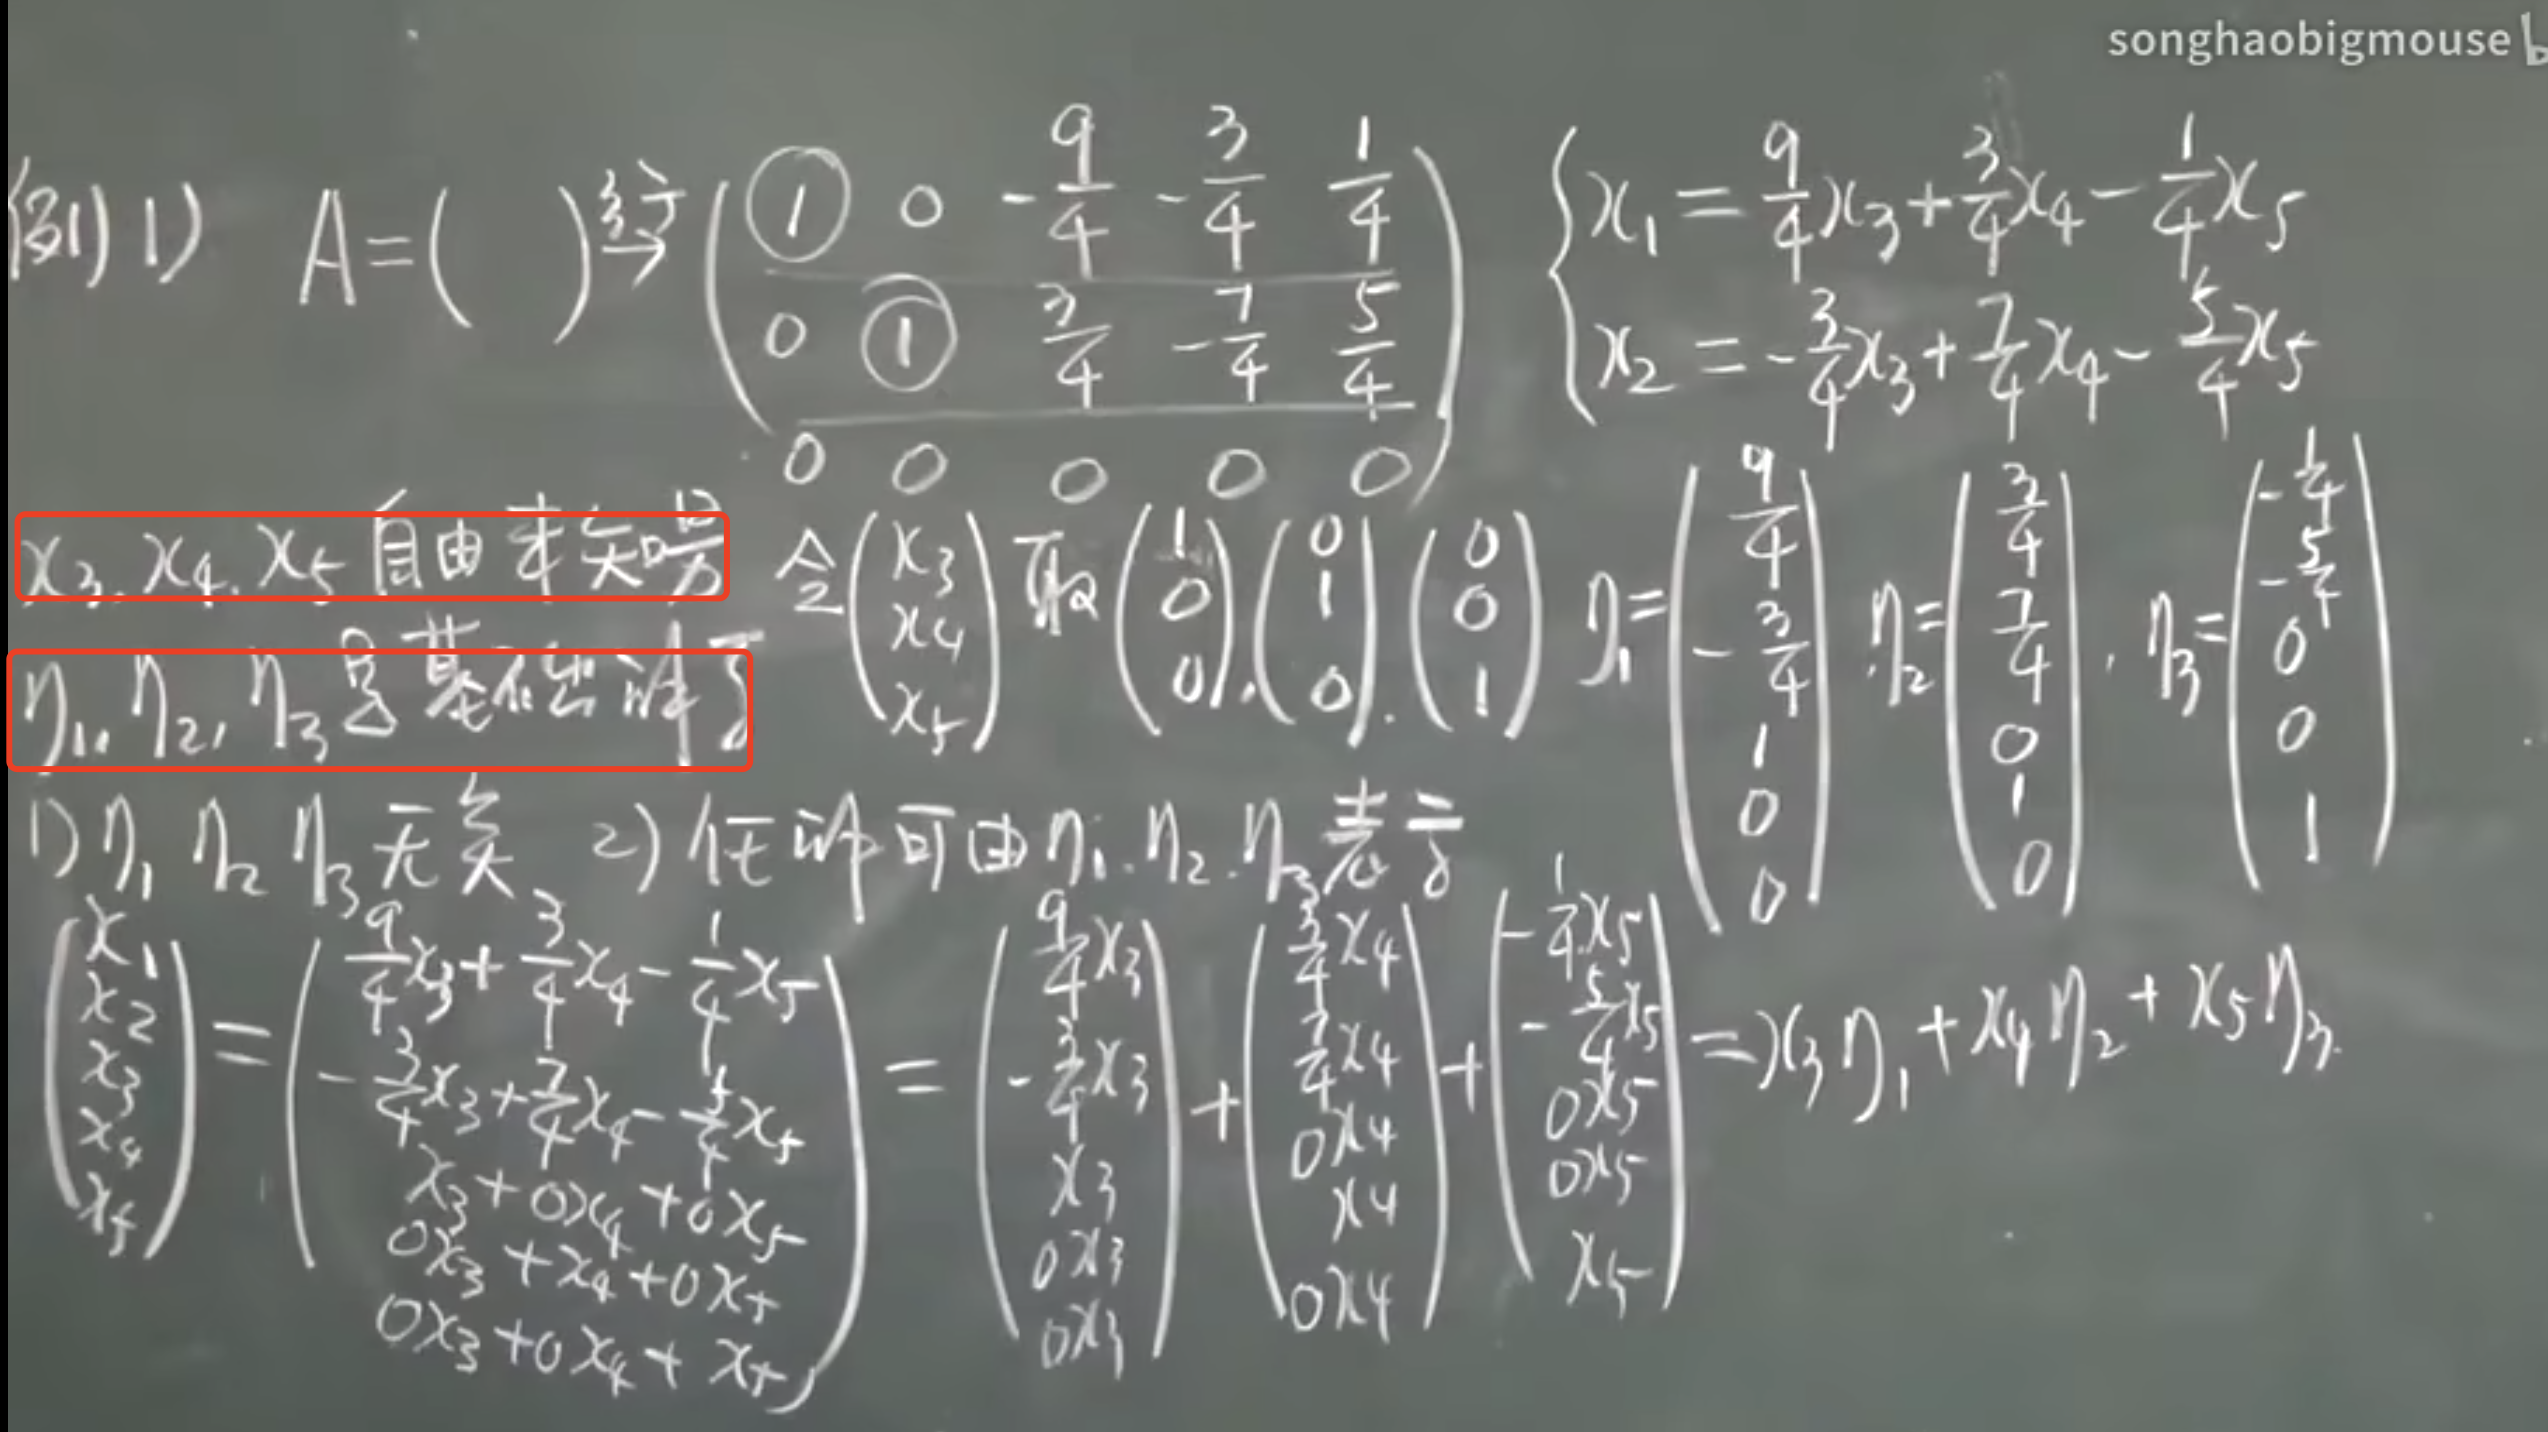 songhaobigmouse b
例1) A=( ) 行→ ( 1 0 -9/4 -3/4 1/4
0 1 3/4 -7/4 5/4
0 0 0 0 0 )
{ x₁ = 9/4x₃ + 3/4x₄ - 1/4x₅
x₂ = -3/4x₃ + 7/4x₄ - 5/4x₅
x₃, x₄, x₅ 自由未知量 令 (x₃ x₄ x₅) 取 (1 0 0), (0 1 0), (0 0 1) η₁= (9/4 -3/4 1 0 0), η₂= (3/4 7/4 0 1 0), η₃= (-1/4 -5/4 0 0 1)
η₁, η₂, η₃ 是基础解系
1) η₁ η₂ η₃ 无关 2) 任一解可由 η₁, η₂, η₃ 表示
(x₁ x₂ x₃ x₄ x₅) = (9/4x₃+3/4x₄-1/4x₅ -3/4x₃+7/4x₄-5/4x₅ x₃+0x₄+0x₅ 0x₃+x₄+0x₅ 0x₃+0x₄+x₅) = (9/4x₃ -3/4x₃ x₃ 0x₃ 0x₃) + (3/4x₄ 7/4x₄ 0x₄ x₄ 0x₄) + (-1/4x₅ -5/4x₅ 0x₅ 0x₅ x₅) = x₃η₁ + x₄η₂ + x₅η₃.